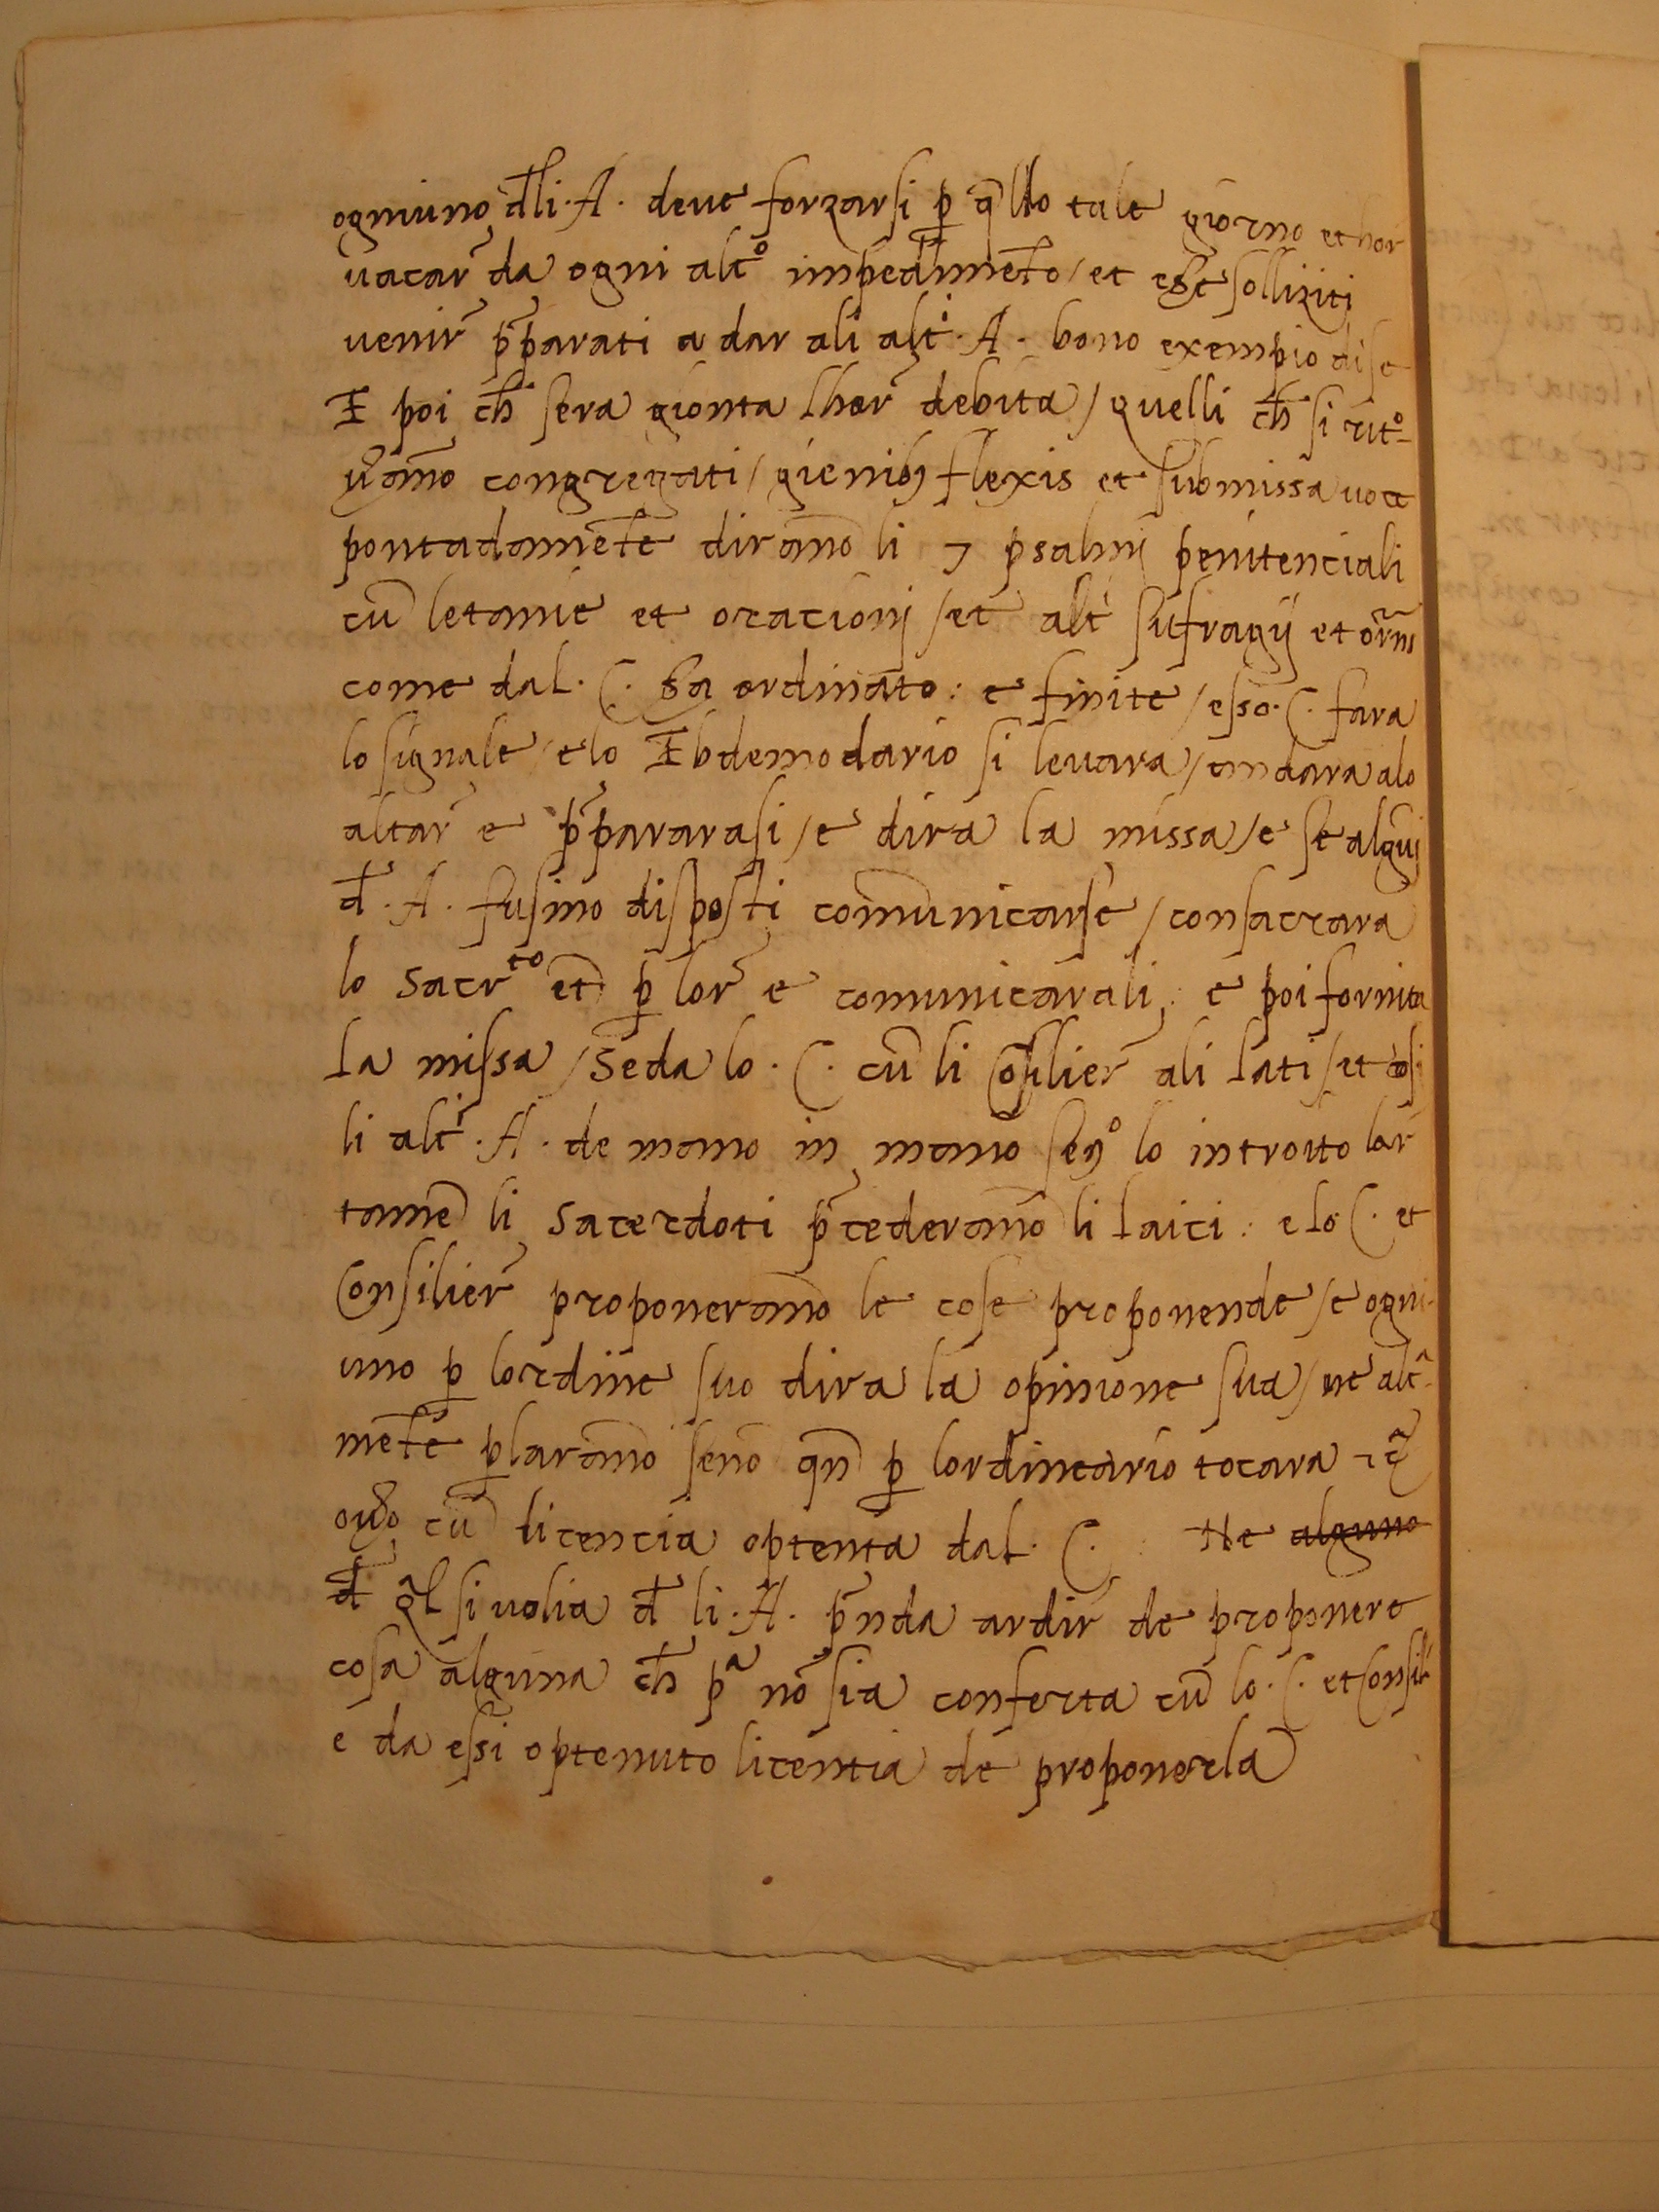 ogniuno dl̄i · A · deue forzarsi p̱ q̄llo tale giorno et hor
uacar̄ da ogni alt° impedimēto / et eēr solliziti
uenir̄ p̄parati a dar ali altⁱ · A · bono exempio di se
E poi ch̄ sera gionta lhor̄ debita / quelli ch̄ si rit°-
u̓āno congregati / gienibꝫ flexis et submissa uoce
pontadamēte dirāno li 7 psalmj penitenciali
cū letanie et oracionj / et altⁱ sufragij et or̄ni
come dal · C · ha ordinato : e finite / esso · C · fara
lo signale / e lo Ebdemodario si leuara / andara alo
altar̄ e p̄pararasi / e dira la missa / e se algūj
d̄ · A · fusino disposti comunicarse / consacrara
lo sacrᵗᵒ et̄ p̱ lor̄ e comunicarali : e poi fornita
la missa / Seda lo · C · cū li Cōsilier̄ ali lati / et cosi
li altⁱ · A · de mano in mano seg° lo introito lor̄
tamē li sacerdoti p̄cederāno li laici : e lo C · et
Consilier̄ proponerāno le cose proponende / e ogni-
uno p̱ lordine suo dira la opinione sua / ne altᵃ-
mēte p̱larāno senō qn̄ p̱ lordineario tocara
ou̓o cū licencia optenta dal · C · : Ne alguno
d̄ q̄l si uolia d̄ li · A · p̄nda ardir̄ de proponere
cosa alguna ch̄ pᵃ nō sia conferta cū lo · C · et Consilⁱ
e da essi optenuto licentia de proponerla